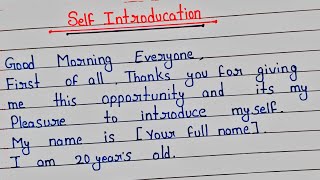 Self Introducation
Good Morning Everyone,
First of all, Thanks you for giving
me this opportunity and its my
Pleasure to introduce myself.
My name is [Your full name].
I am 20 year's old.